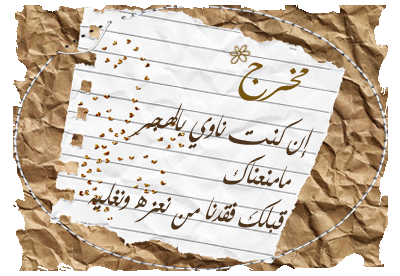 مخرج
إن كنت ناوي بالهجر
مامنعناك
قبلك فقدنا من نعزه ونغليه